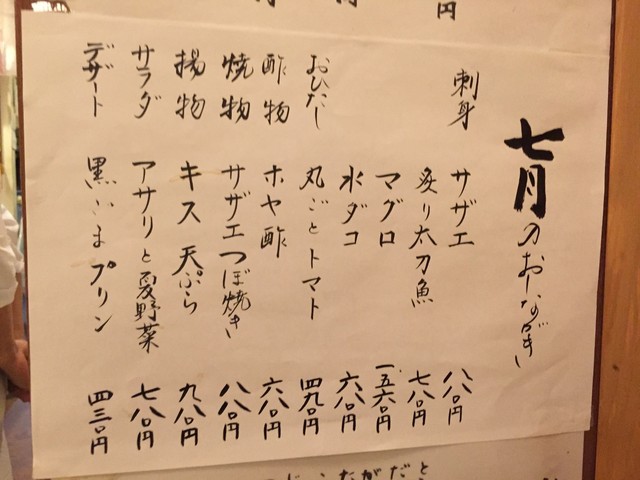 七月のおしながき
刺身 サザエ 八八〇円
炙り太刀魚 七八〇円
マグロ 一五六〇円
水ダコ 六八〇円
おひたし 丸ごとトマト 四九〇円
酢物 ホヤ酢 六八〇円
焼物 サザエつぼ焼き 八八〇円
揚物 キス天ぷら 九八〇円
サラダ アサリと夏野菜 七八〇円
デザート 黒ごまプリン 四三〇円
円